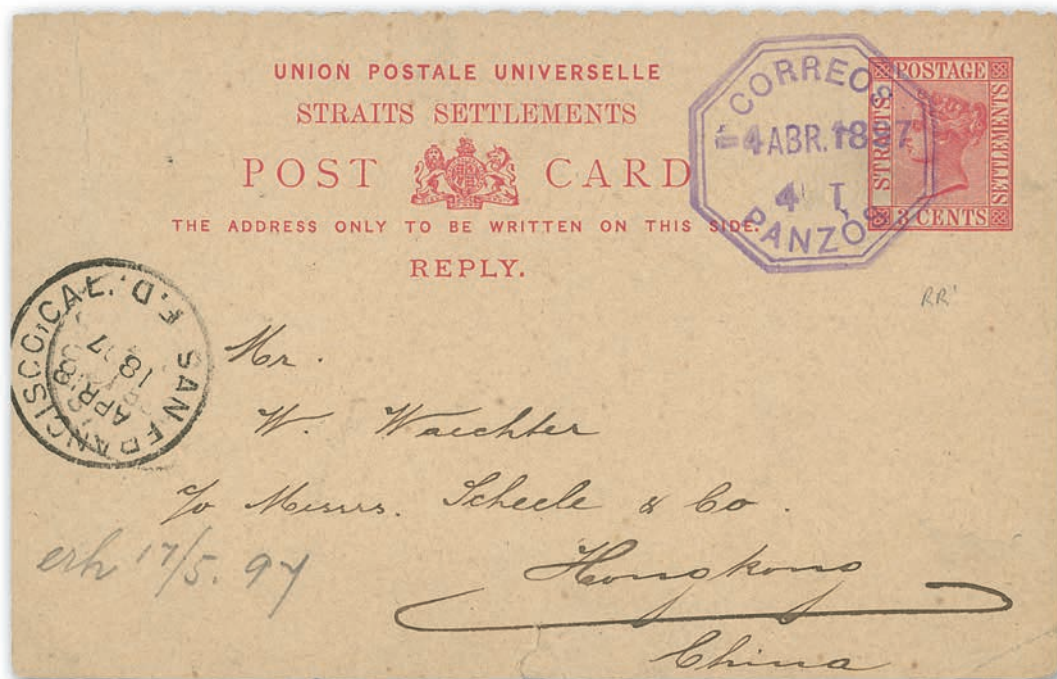 UNION POSTALE UNIVERSELLE
STRAITS SETTLEMENTS
POST CARD
THE ADDRESS ONLY TO BE WRITTEN ON THIS SIDE.
REPLY.
CORREOS
4 ABR. 1897
4 T.
PANZOS
POSTAGE
STRAITS
SETTLEMENTS
3 CENTS
RR
SAN FRANCISCO, CAL. F.D.
APR
18
Mr.
W. Waechter
c/o Messrs. Scheele & Co.
Hongkong
China
erh 17/5. 97